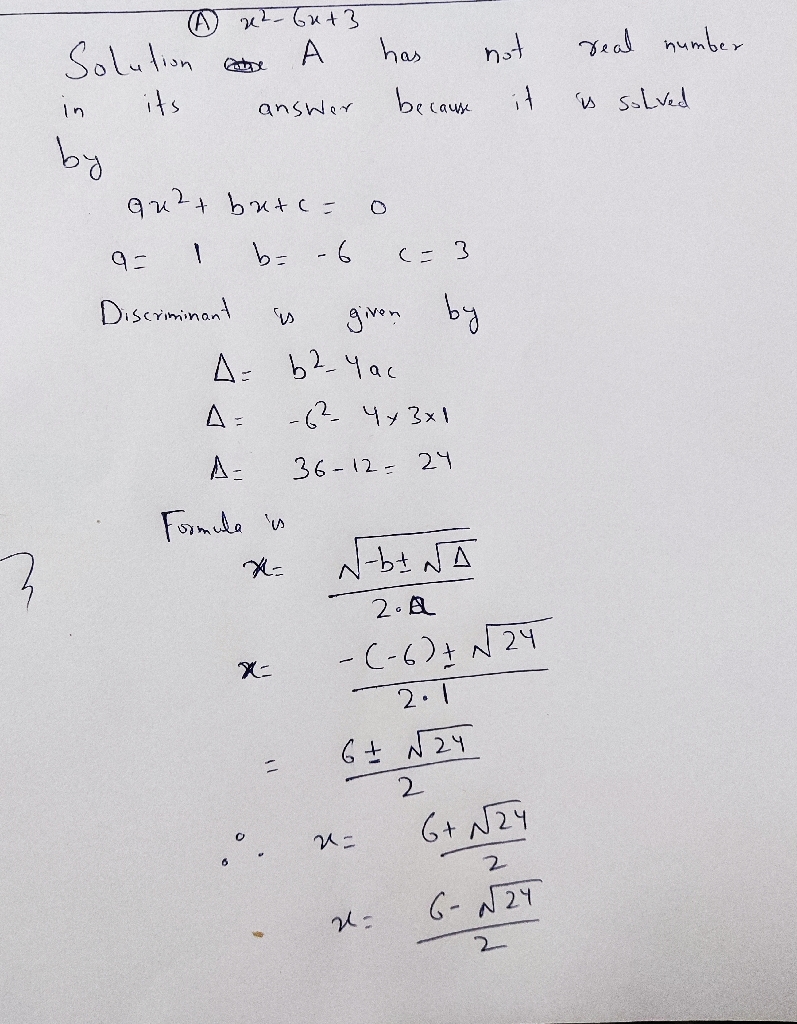 Ⓐ x²-6x+3
Solution A has not real number
in its answer because it is solved
by
ax²+bx+c=0
a= 1 b= -6 c= 3
Discriminant is given by
Δ= b²-4ac
Δ= -6²-4×3×1
Δ= 36-12=24
Formula is
x= √-b±√Δ
2.a
x= -(-6)±√24
2.1
= 6±√24
2
∴ x= 6+√24
2
x= 6-√24
2